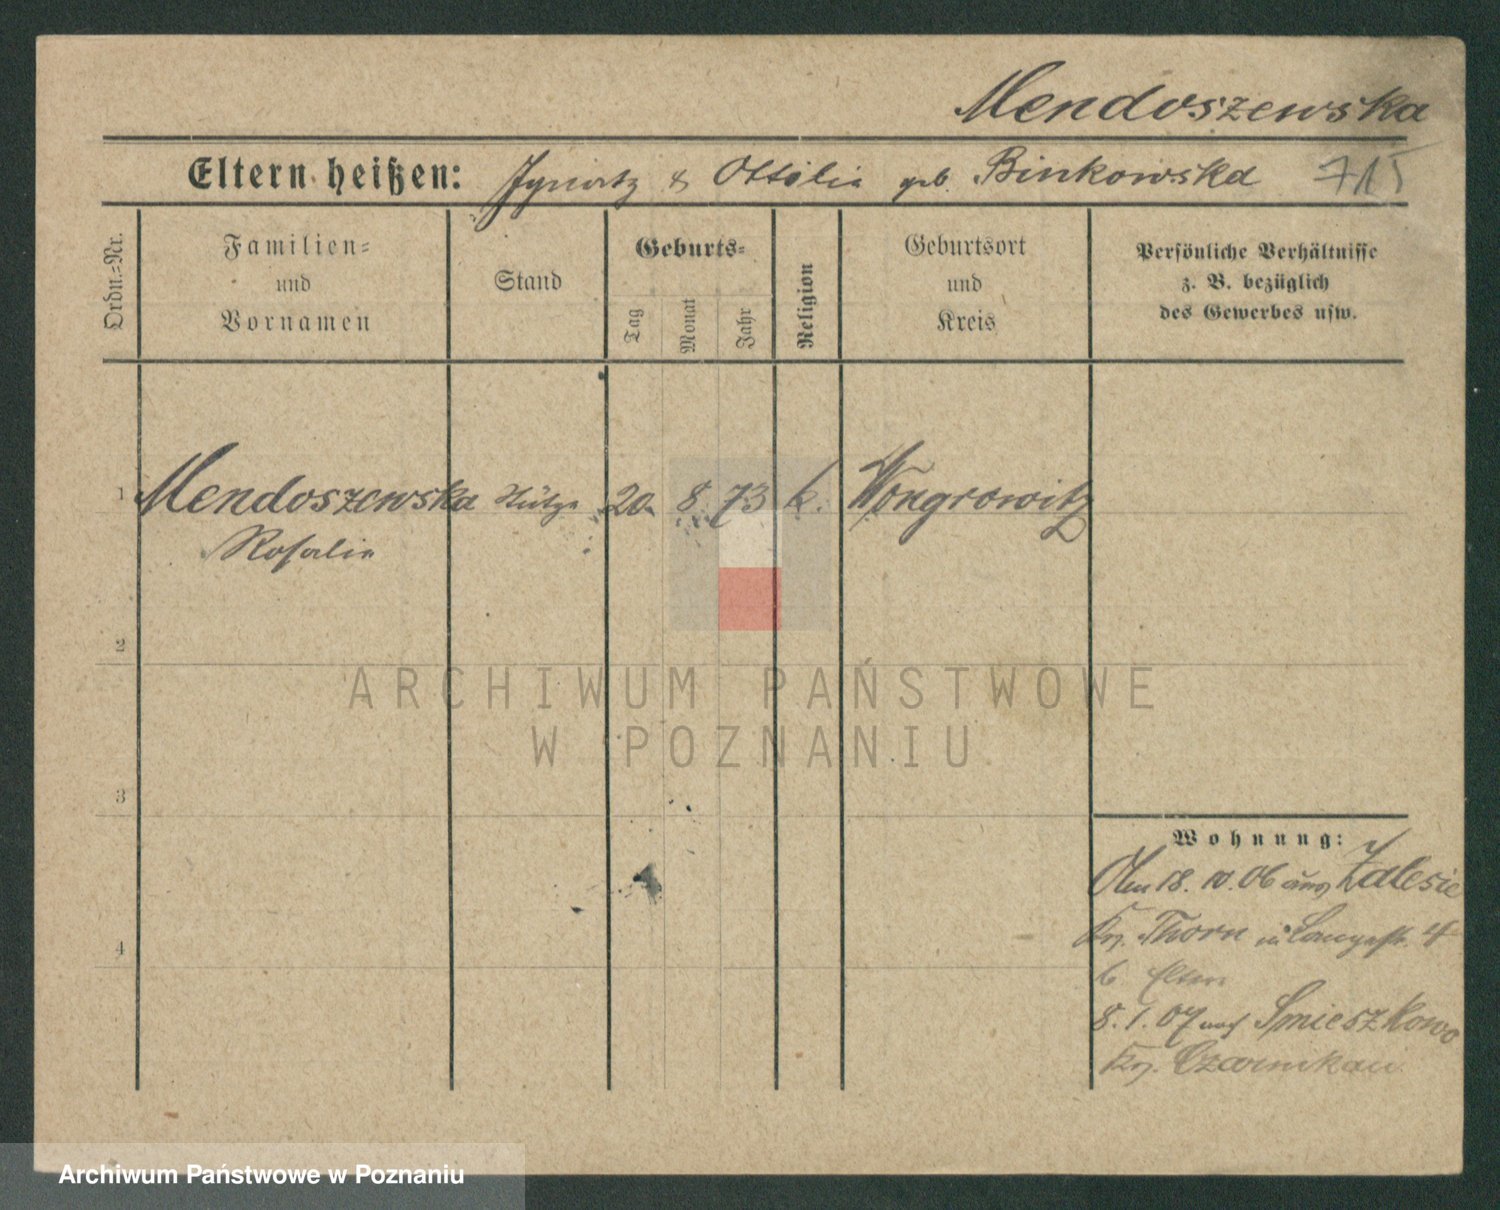 Mendoszewska
Eltern heißen: Ignatz & Ottilie geb. Binkowska 715
Ordn.=Nr.
Familien=
und
Vornamen
Stand
Geburts=
Tag
Monat
Jahr
Religion
Geburtsort
und
Kreis
Persönliche Verhältnisse
z. B. bezüglich
des Gewerbes usw.
1 Mendoszewska Stütze 20. 8. 73 k. Wongrowitz
Rosalie
2
ARCHIWUM PAŃSTWOWE
W POZNANIU
3
Wohnung:
18. 10. 06 aus Zalesie
Kr. Thorn in Langestr. 4
b. Eltern
4
8. 1. 07 nach Smieszkowo
Kr. Czarnikau.
Archiwum Państwowe w Poznaniu